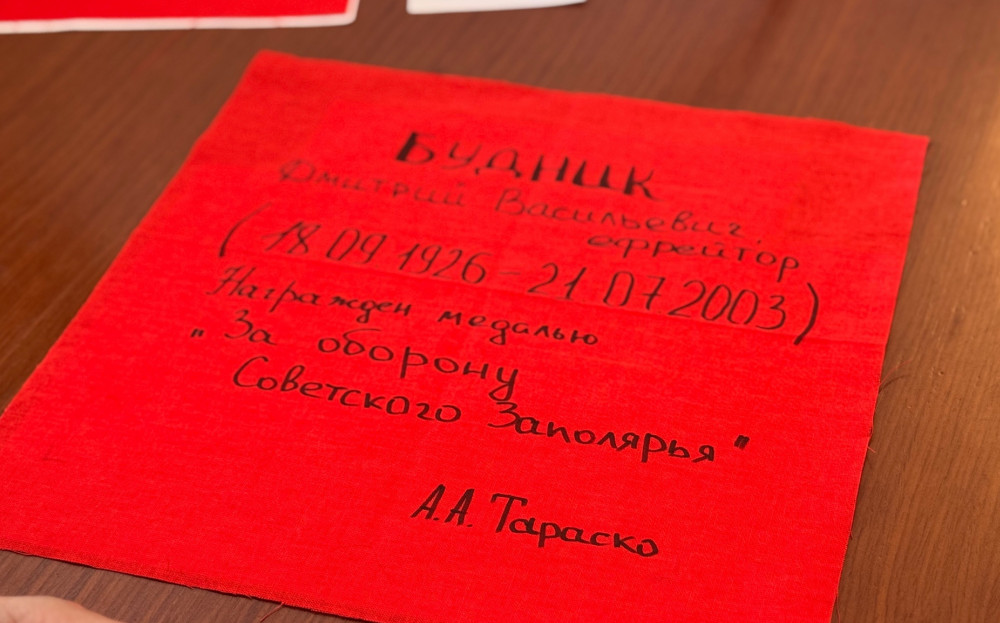 БУДНИК
Дмитрий Васильевич,
ефрейтор
(18 09 1926 - 21 07 2003)
Награжден медалью
"За оборону
Советского Заполярья"
А.А. Тараско